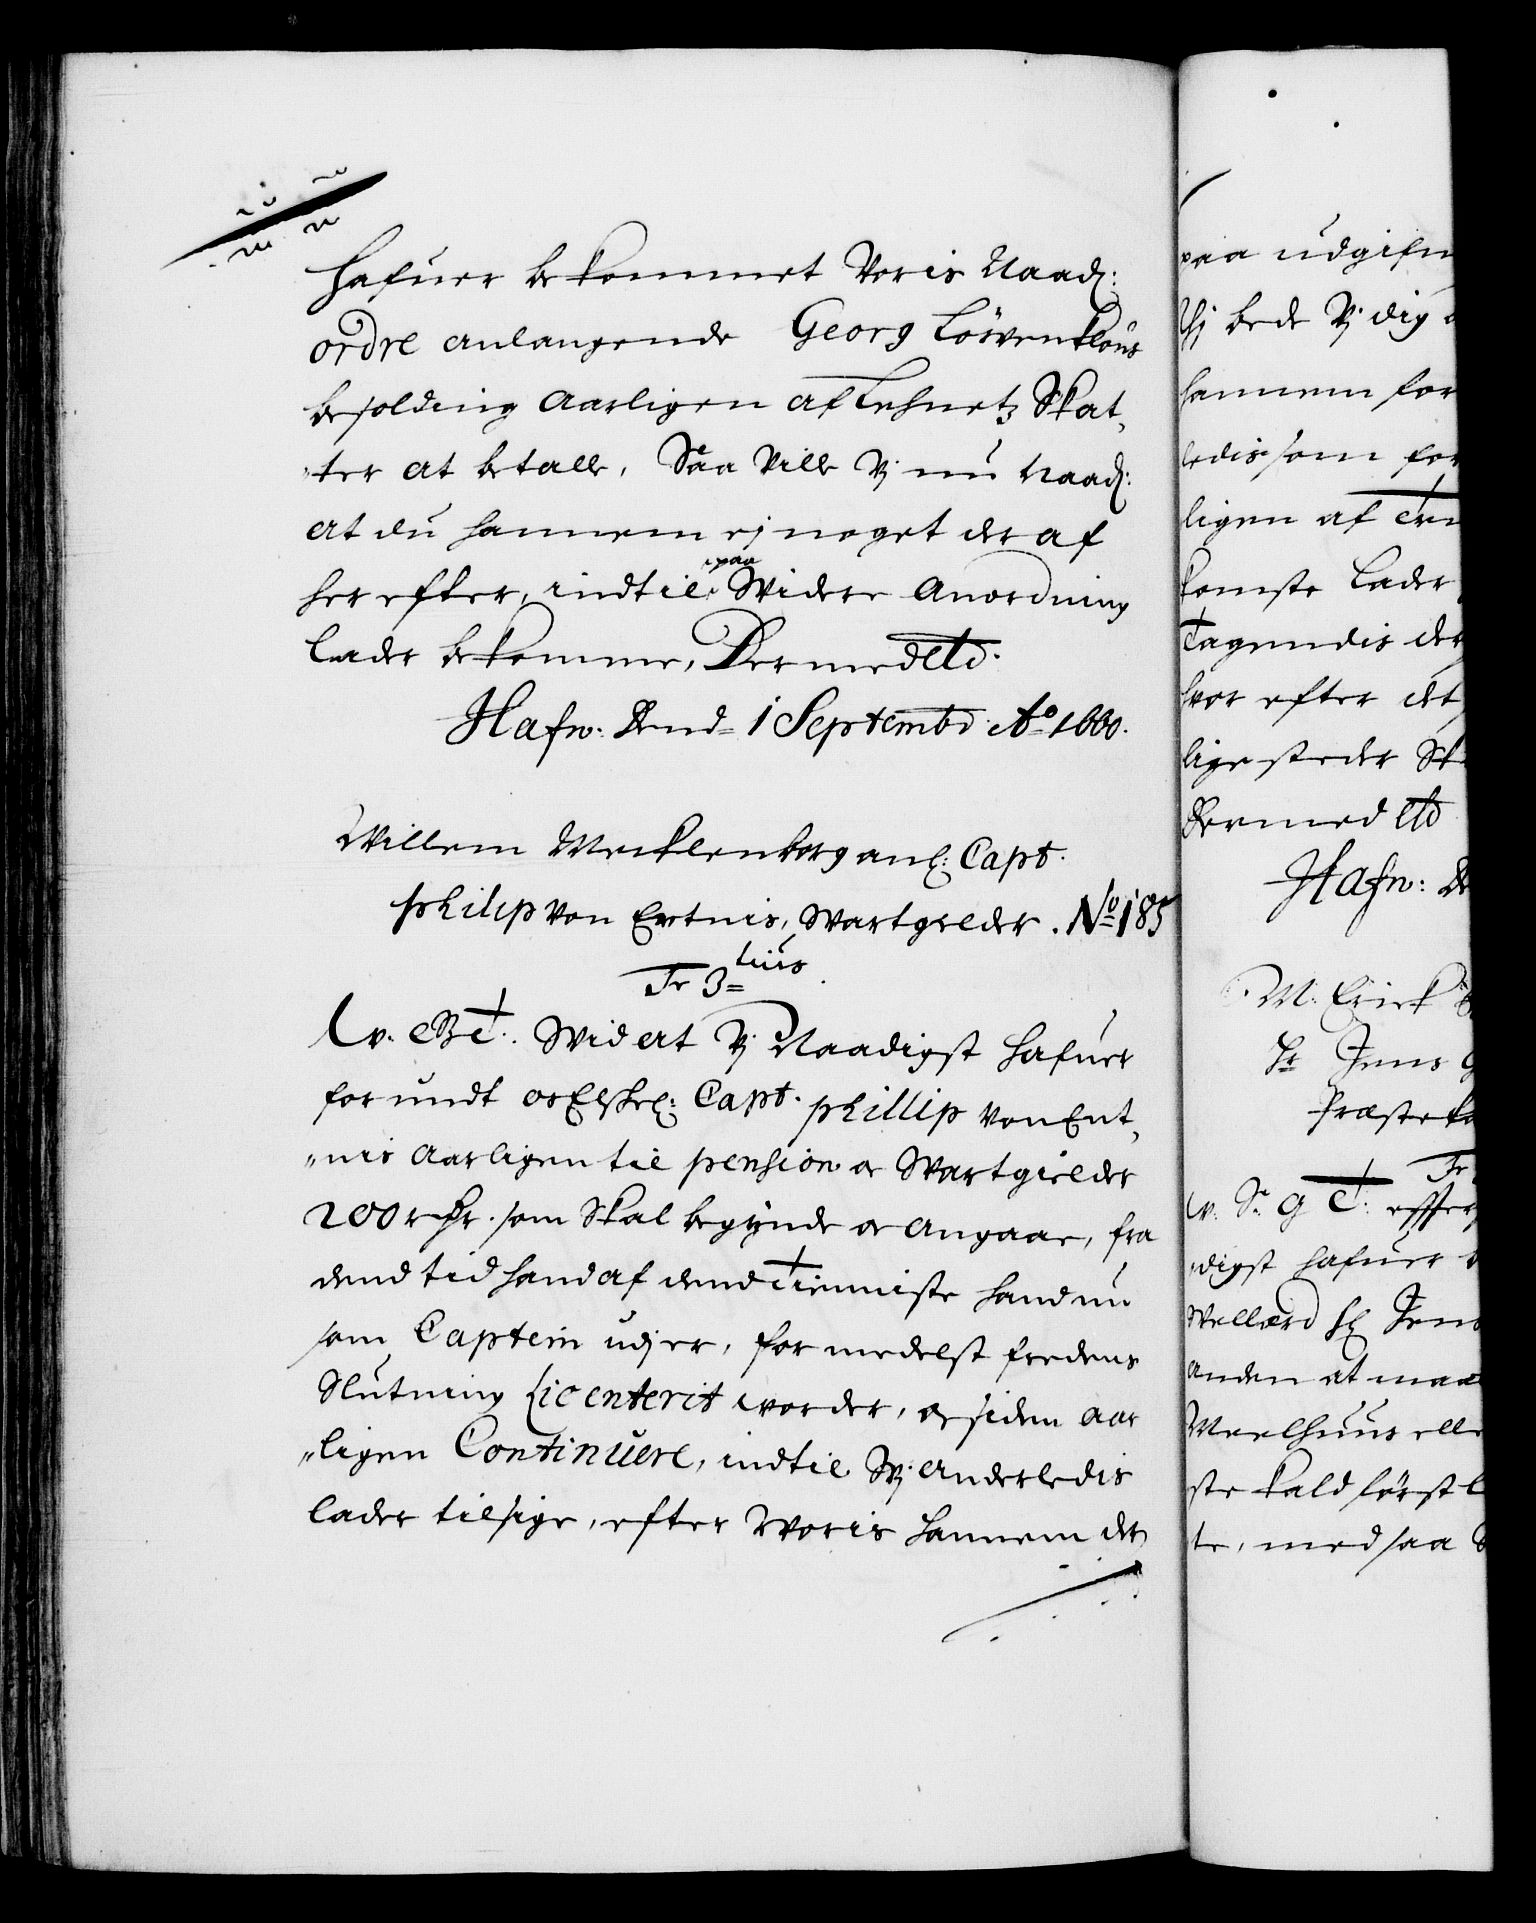 hafuer bekommet Voris Naad:
ordre anlangende Georg Löwenklous
besolding Aarligen af Lehnetz Skat,
"ter at betalle, Saa Ville Vj nu Naad:
at du hannem ej noget der af
her efter, indtil paa Widere Anordning
lader bekomme, Dermed etc.
Hafn: Dend 1 Septembr Ao 1660.
Willem Mecklenborg anl: Capt.
philip Von Entnis, Wartgelder. No 185
Fr 3tius
W. G T. Wid at Vj Naadigst hafuer
forundt os Elskel: Capt. phillip Von Ent,
"nis Aarligen til pension oc Wartgielder
200 rdr. som Skal begynde oc angaar, fra
dend tid hand af dend Tienniste hand nu
som Captein udj er, formedelst fredens
Slutning Licenterit worder, oc siden aar
"ligen Continuere, indtil Vj anderledis
lader tilsige, efter Woris hannem der
paa udgifn
Thj bede Vj dig
hannem for
ledis som for
ligen af
komste lader
Tagendis der
hvor efter det
lige steder Sk
Dermed etc
Hafn: De
M: Erick
Hr Jens
Præste ka
Fr
W: S. G T: effter
"digst hafuer
Wellærd Hr Jens
anden at maa
Meelhuus elle
ste kald først l
te, med saa